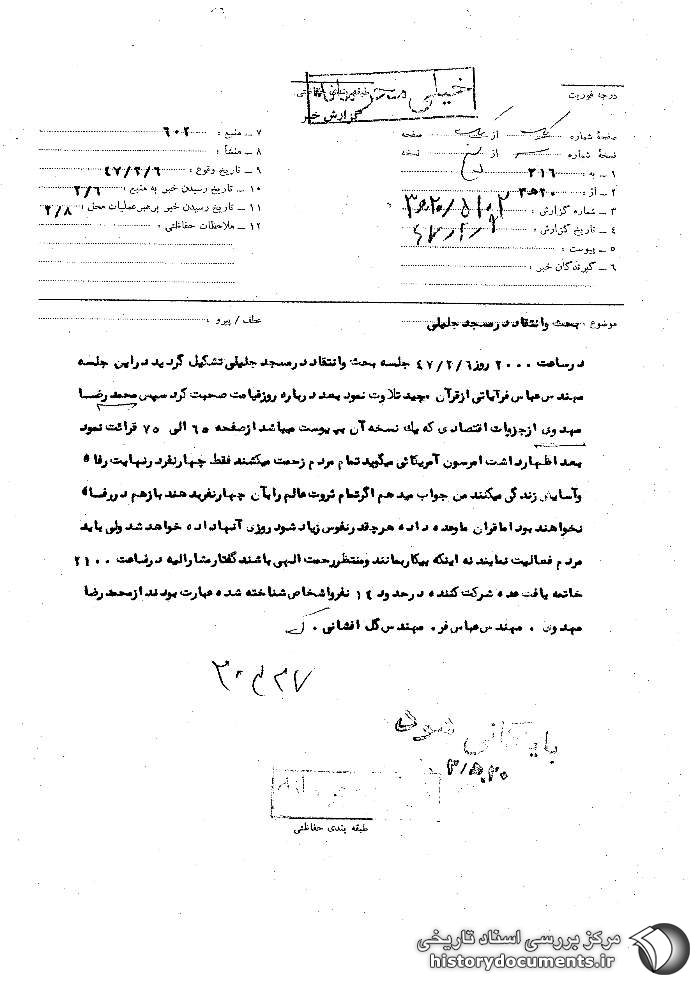 خیلی محرمانه
طبقه بندی حفاظتی
گزارش خبر
درجه فوریت
صفحهٔ شماره یک از یک صفحه
نسخهٔ شماره از نسخه
۱ – به : ۳۱۶
۲ – از : ۲۰ه۳
۳ – شماره گزارش :
۴ – تاریخ گزارش :
۵ – پیوست :
۶ – گیرندگان خبر :
۷ – منبع : ۶۰۲
۸ – منشأ :
۹ – تاریخ وقوع : ۴۷/۲/۶
۱۰ – تاریخ رسیدن خبر به منبع : ۲/۶
۱۱ – تاریخ رسیدن خبر برهبر عملیات محل : ۲/۸
۱۲ – ملاحظات حفاظتی :
موضوع : بحث وانتقاد درمسجد جلیلی
عطف / پیرو :
درساعت ۲۰۰۰ روز ۴۷/۲/۶ جلسه بحث وانتقاد درمسجد جلیلی تشکیل گردید دراین جلسه
مهندس عباس فرآیاتی ازقرآن مجید تلاوت نمود بعد درباره روزقیامت صحبت کرد سپس محمد رضا
مهدوی ازجزوات اقتصادی که یک نسخه آن به پیوست میباشد ازصفحه ۶۵ الی ۷۵ قرائت نمود
بعد اظهارداشت امرسون آمریکائی میگوید تمام مردم زحمت میکشند فقط چهارنفرد رنهایت رفاه
وآسایش زندگی میکنند من جواب میدهم اگرتمام ثروت عالم رابآن چهارنفربدهند بازهم دررفاه
نخواهند بود اما قران ماوعده داده هرچقدرنفوس زیاد شود روزی آنهاداده خواهد شد ولی باید
مردم فعالیت نمایند نه اینکه بیکاربمانند ومنتظررحمت الهی باشند گفتارمشارالیه درساعت ۲۱۰۰
خاتمه یافت عده شرکت کننده درحدود ۱۴ نفرواشخاص شناخته شده عبارت بودند ازمحمد رضا
مهدوی ، مهندس عباس فر، مهندس گل افشانی .
بایگانی شود
طبقه بندی حفاظتی
مرکز بررسی اسناد تاریخی
historydocuments.ir